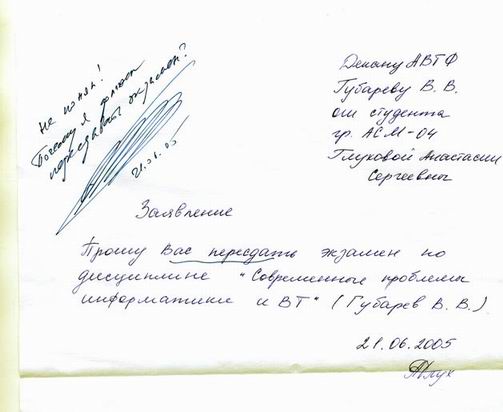 не понял!
Почему я должен
пересдавать экзамен?
21.06.05
Декану АВТФ
Губареву В. В.
от студента
гр. АСМ-04
Глуховой Анастасии
Сергеевны
Заявление
Прошу Вас пересдать экзамен по
дисциплине "Современные проблемы
информатики и ВТ" (Губарев В. В.).
21.06.2005
АГлух